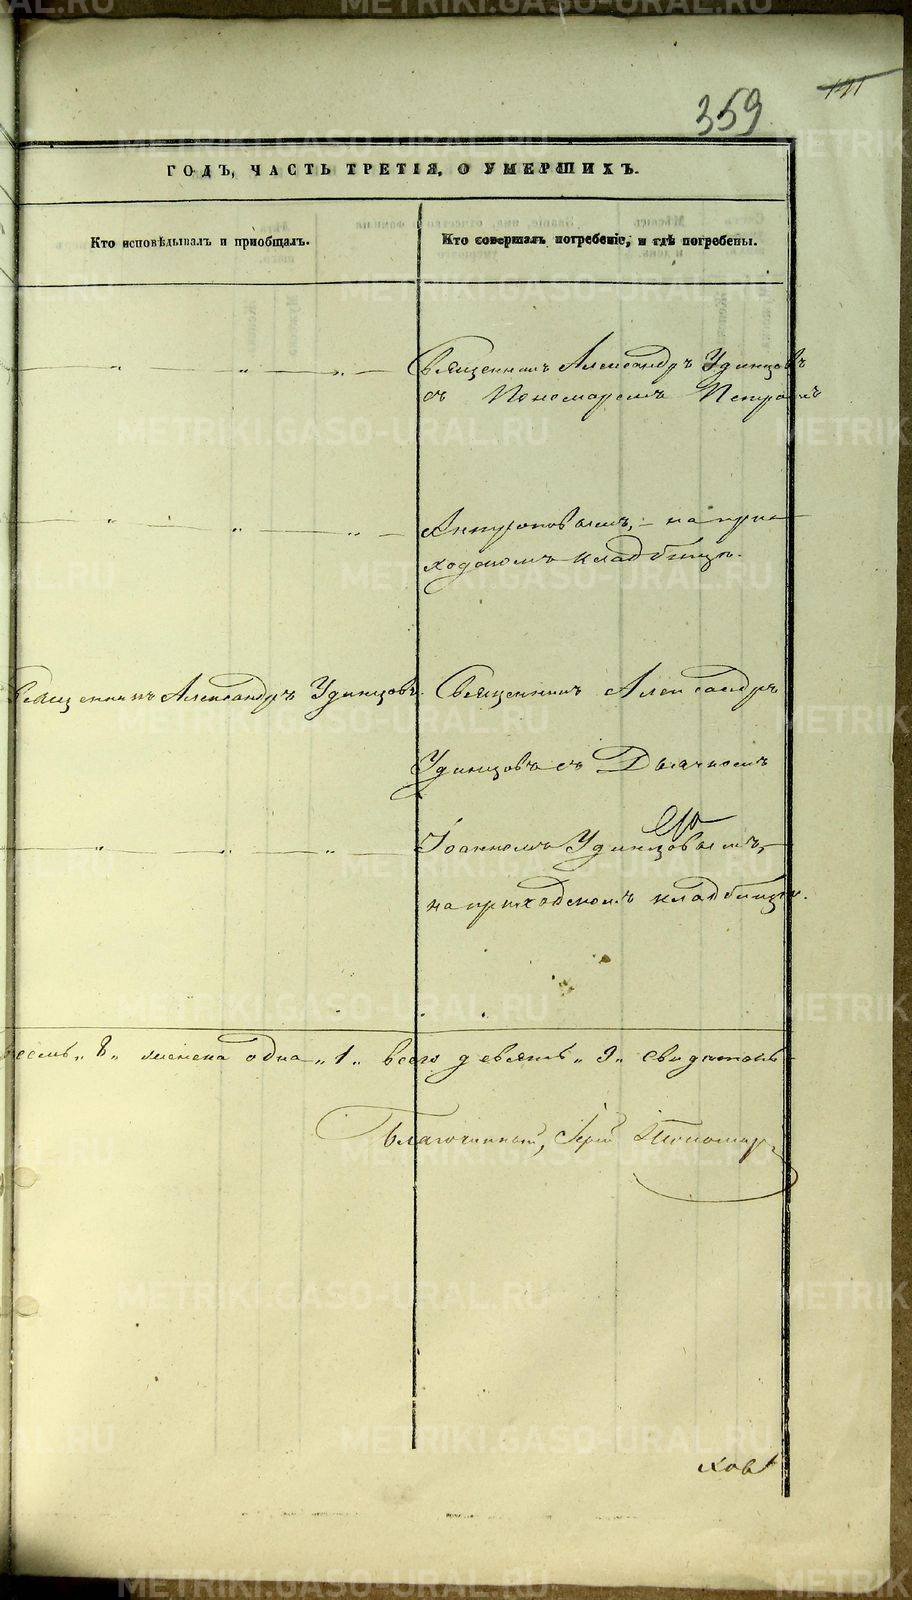 359
191
ГОДЪ, ЧАСТЬ ТРЕТІЯ, О УМЕРШИХЪ.
Кто исповѣдывалъ и пріобщалъ.
Кто совершалъ погребеніе, и гдѣ погребены.
— „ — „ — „ —
Священникъ Александръ Удинцовъ
съ Пономаремъ Петромъ
— „ — „ — „ —
Антроповымъ, – на при-
ходскомъ кладбищѣ.
Священникъ Александръ Удинцовъ.
Священникъ Александръ
Удинцовъ съ Дьячкомъ
— „ — „ — „ —
Іоанномъ Удинцовымъ, –
на приходскомъ кладбищѣ.
восемь „8„ женска одна „1„ всего девять „9„
Благочинный, Іерей Пономар
ковъ
METRIKI.GASO-URAL.RU